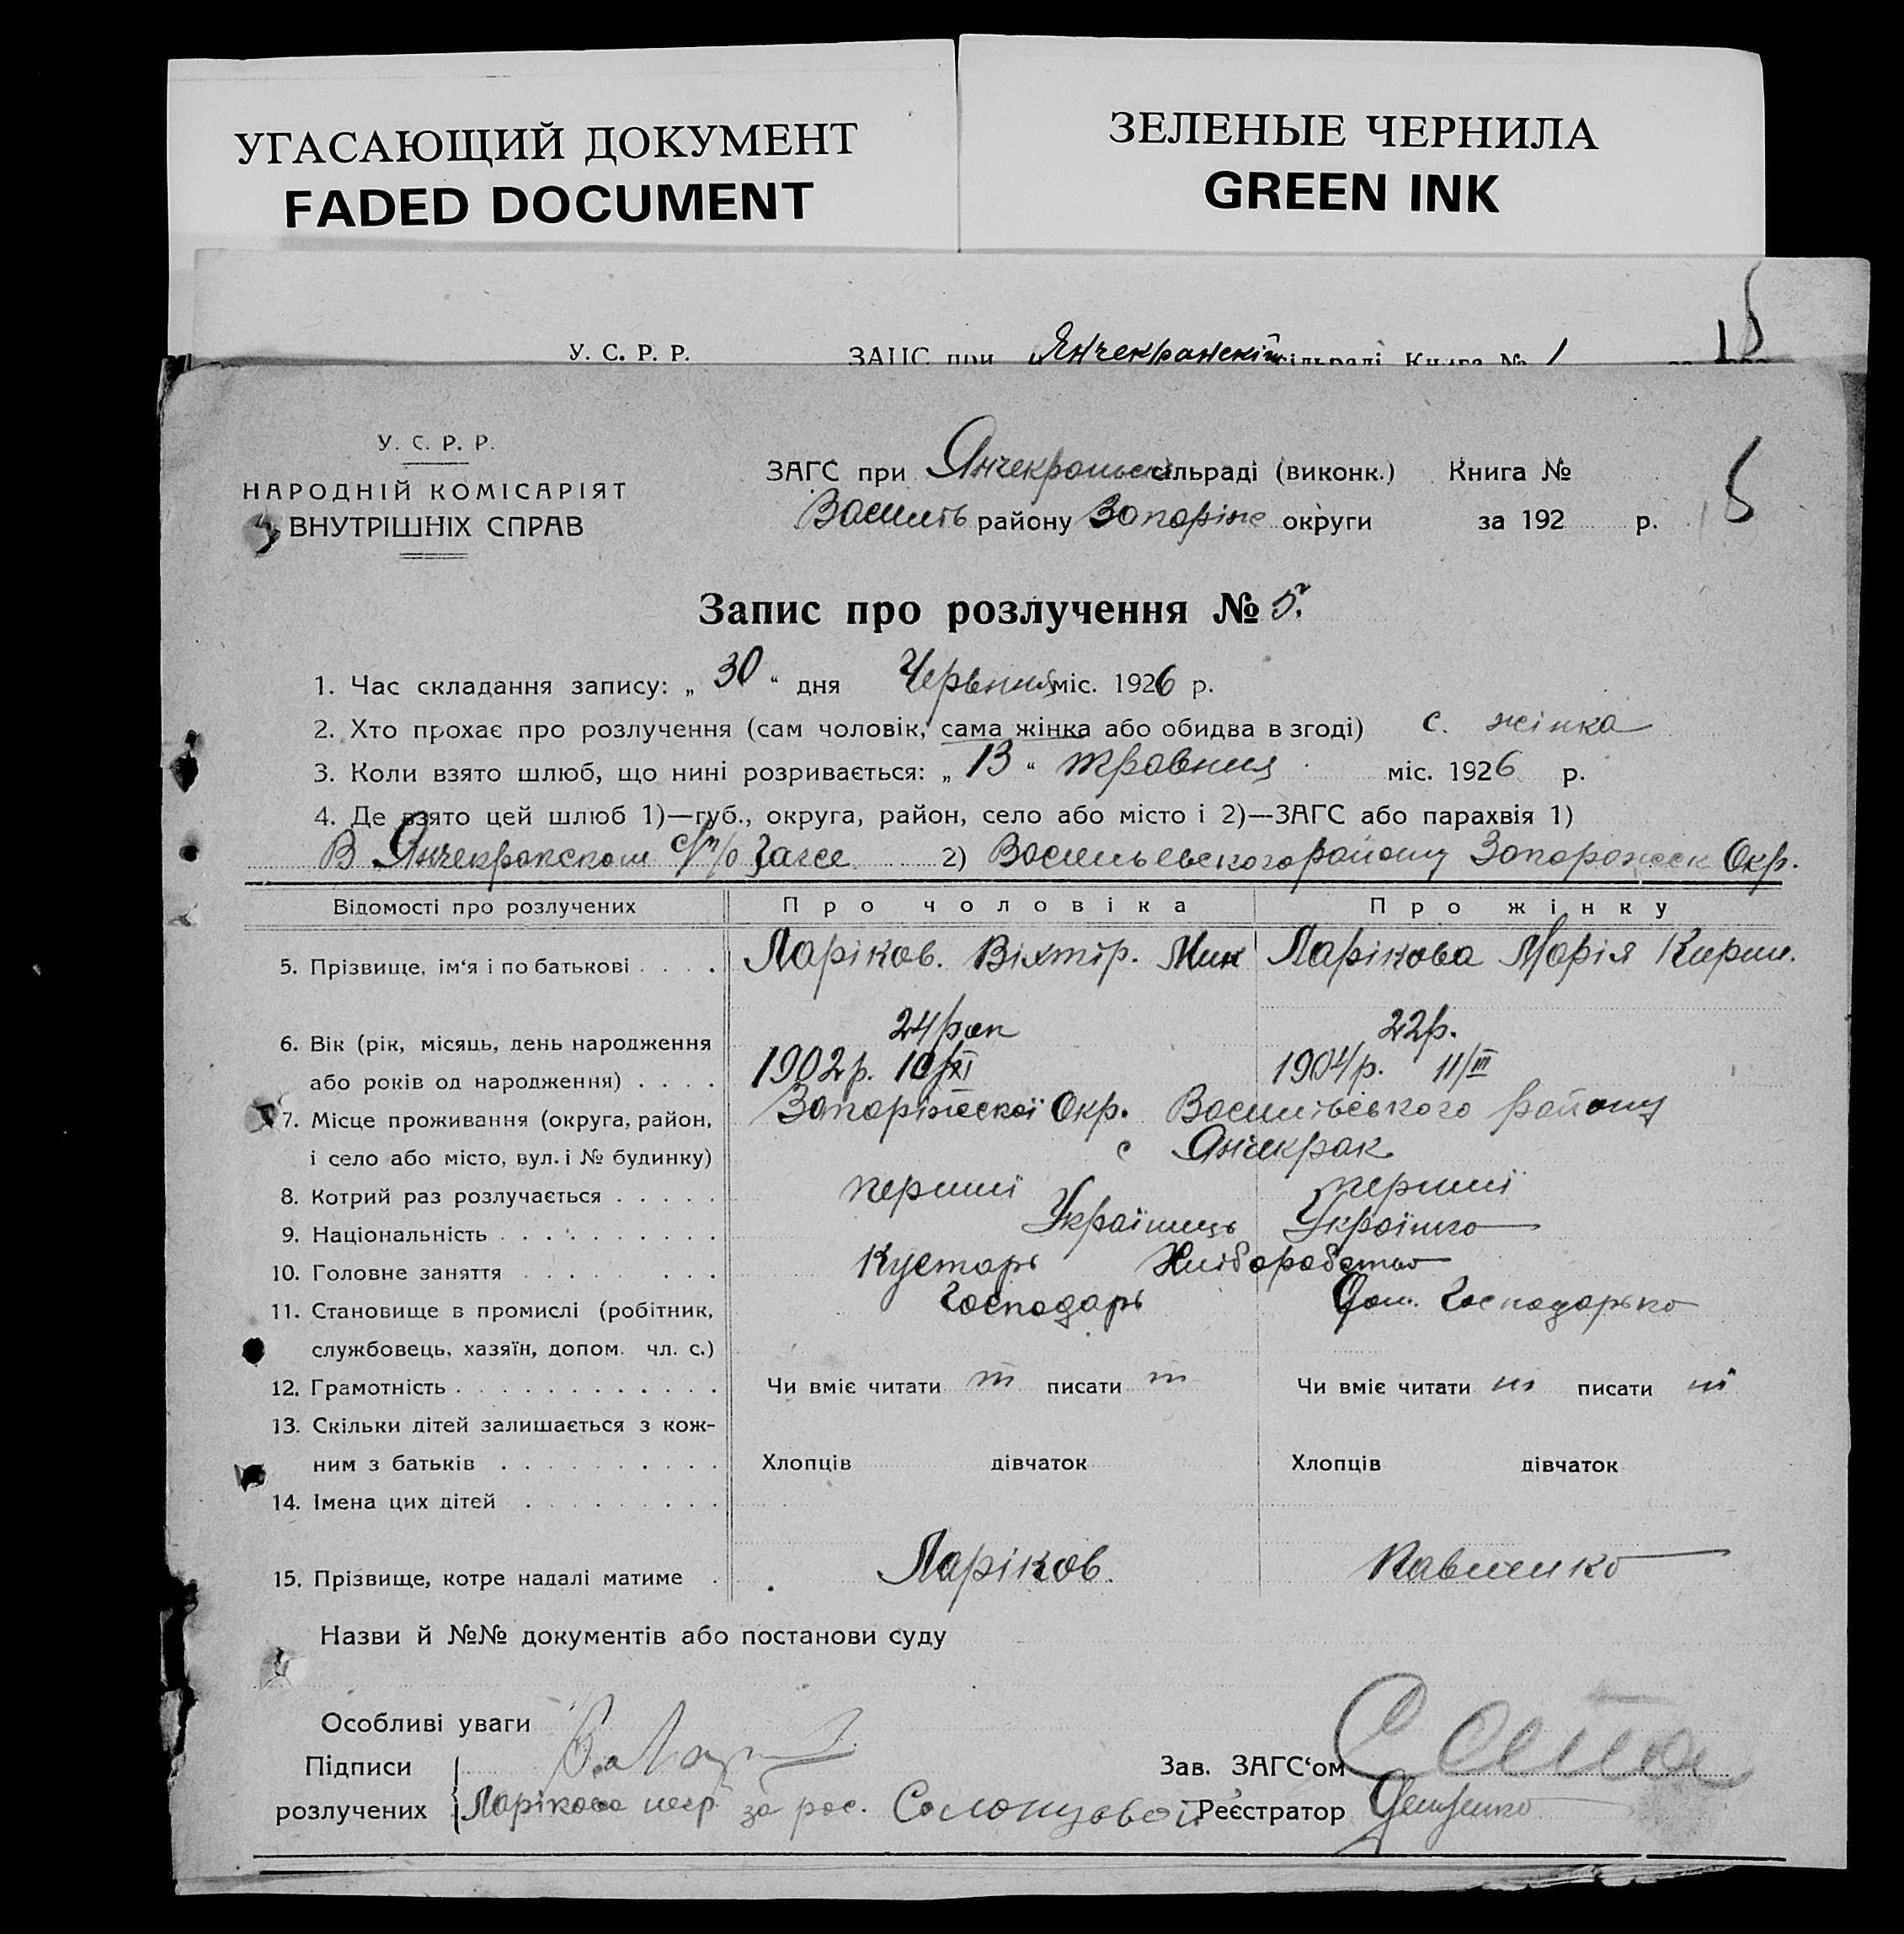 УГАСАЮЩИЙ ДОКУМЕНТ
FADED DOCUMENT
ЗЕЛЕНЫЕ ЧЕРНИЛА
GREEN INK
У. С. Р. Р. ЗАГС при Янчекракскій сільраді Книга № 1
У. С. Р. Р.
НАРОДНІЙ КОМІСАРІЯТ
ВНУТРІШНІХ СПРАВ
ЗАГС при сільраді (виконк.) Книга №
Василь району Запоріж округи за 192 р.
Запис про розлучення № 5.
1. Час складання запису: „ 30 “ дня Червния міс. 1926 р.
2. Хто прохає про розлучення (сам чоловік, сама жінка або обидва в згоді) с. жінка
3. Коли взято шлюб, що нині розривається: „ 13 “ травния міс. 1926 р.
4. Де взято цей шлюб 1)—губ., округа, район, село або місто і 2)—ЗАГС або парахвія 1)
В Янчекракском Загсе 2) Васильевского району Запорожск Окр.
Відомості про розлучених Про чоловіка Про жінку
5. Прізвище, ім‘я і по батькові . . . . Ларіков. Віктір. Мик Ларікова Марія Кирил.
24 рок 22 р.
6. Вік (рік, місяць, день народження
або років од народження) . . . . 1902 р. 10/XI 1904 р. 11/III
7. Місце проживання (округа, район, Запоріжської Окр. Васильівського району
і село або місто, вул. і № будинку) с Янчекрак
8. Котрий раз розлучається . . . . . перший перший
9. Національність . . . . . . . . . . Українець Українка
10. Головне заняття . . . . . . . . Кустарь Хліборобство
11. Становище в промислі (робітник, Господарь Дом. Господарька
службовець, хазяїн, допом. чл. с.)
12. Грамотність . . . . . . . . . . . . Чи вміє читати писати Чи вміє читати писати
13. Скільки дітей залишається з кож-
ним з батьків . . . . . . . . . . Хлопців дівчаток Хлопців дівчаток
14. Імена цих дітей . . . . . . . . .
15. Прізвище, котре надалі матиме . Ларіков. Павленко
Назви й №№ документів або постанови суду
Особливі уваги
Підписи Зав. ЗАГС‘ом
розлучених Ларікова негр. за рос. Солонцовой Реєстратор